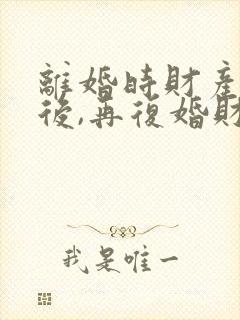 離婚時財產
後,再復婚財
我是唯一